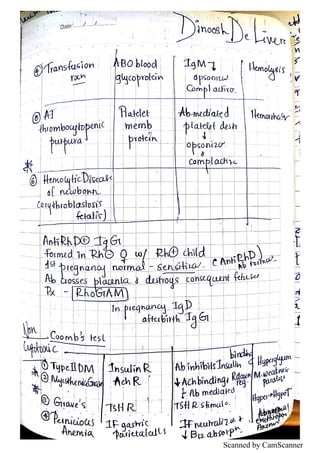 Date:
Dinoosh De Livera
④ Transfusion rxn
ABO blood glycoprotein
IgM
opsoniz
Compl activ.
Hemolysis
⑤ AI thrombocytopenic purpura
Platelet memb protein
Ab-mediated platelet destr
↓
opsoniz
compl
⑥ Hemolytic Disease of newborn
(erythroblastosis fetalis)
Anti RhD⊕ IgG
formed in Rh⊖ ♀ w/ Rh⊕ child
1st pregnancy normal - sensitiza. (Anti RhD) Ab forms.
Ab crosses placenta & destroys consequent fetuses
Rx - RhoGIAM
In pregnancy IgD
afterbirth IgG
Non Cytotoxic
Coomb's test
① Type II DM
Insulin R
Ab inhibits Insulin binding
Hyperglycem
② Myasthenia Gravis
Ach R
↓ Ach binding & R down reg
M. weakness Paralys
Ab mediated
③ Grave's
TSH R
TSH R stimula.
Hyper
④ Pernicious Anemia
IF gastric parietal cells
IF neutraliz &
↓ B12 absorp.
Abnormal
Anemia
Scanned by CamScanner